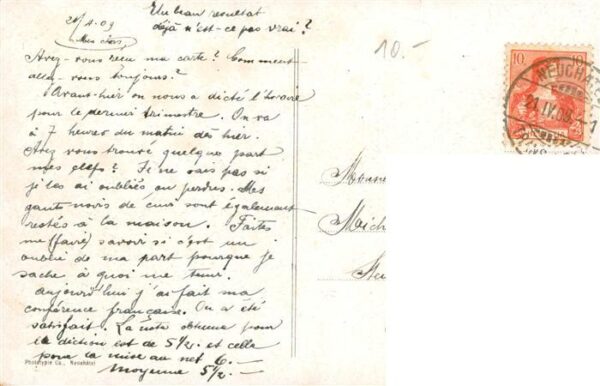 Un beau resultat
déjà n'est-ce pas vrai?
21/4.09
Avez-vous reçu ma carte? Comment
allez-vous toujours?
Avant-hier on nous a dicté l'horaire
pour le dernier trimestre. On va
à 7 heures du matin dès hier.
Avez vous trouvé quelque part
mes clefs? Je ne sais pas si
je les ai oubliés ou perdus. Mes
gants noirs de cuir sont également
restés à la maison. Faites
me (faire) savoir si c'est un
oubli de ma part pourque je
sache à quoi me tenir.
Aujourd'hui j'ai fait ma
conférence française. On a été
satisfait. La note obtenue pour
la diction est de 5½. et celle
pour la mise au net 6.—
moyenne 5½.—
Phototypie Co., Neuchâtel
10.-
10
10
NEUCHA
21.IV.09
Monsie
Mich